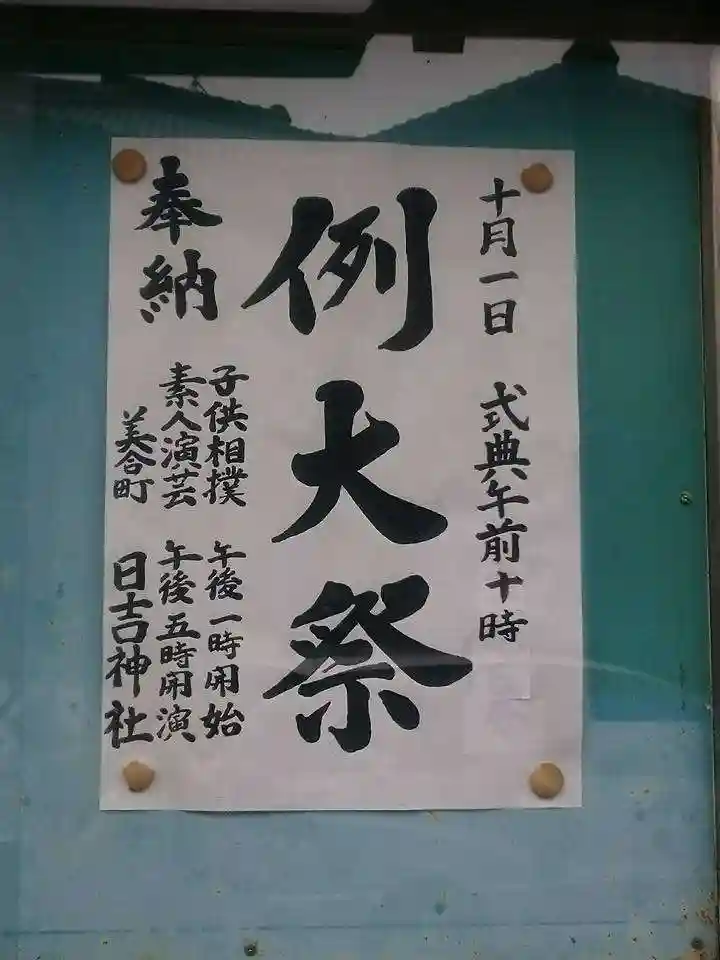 十月一日 式典午前十時
例大祭
奉納
子供相撲 午後一時開始
素人演芸 午後五時開演
美合町 日吉神社